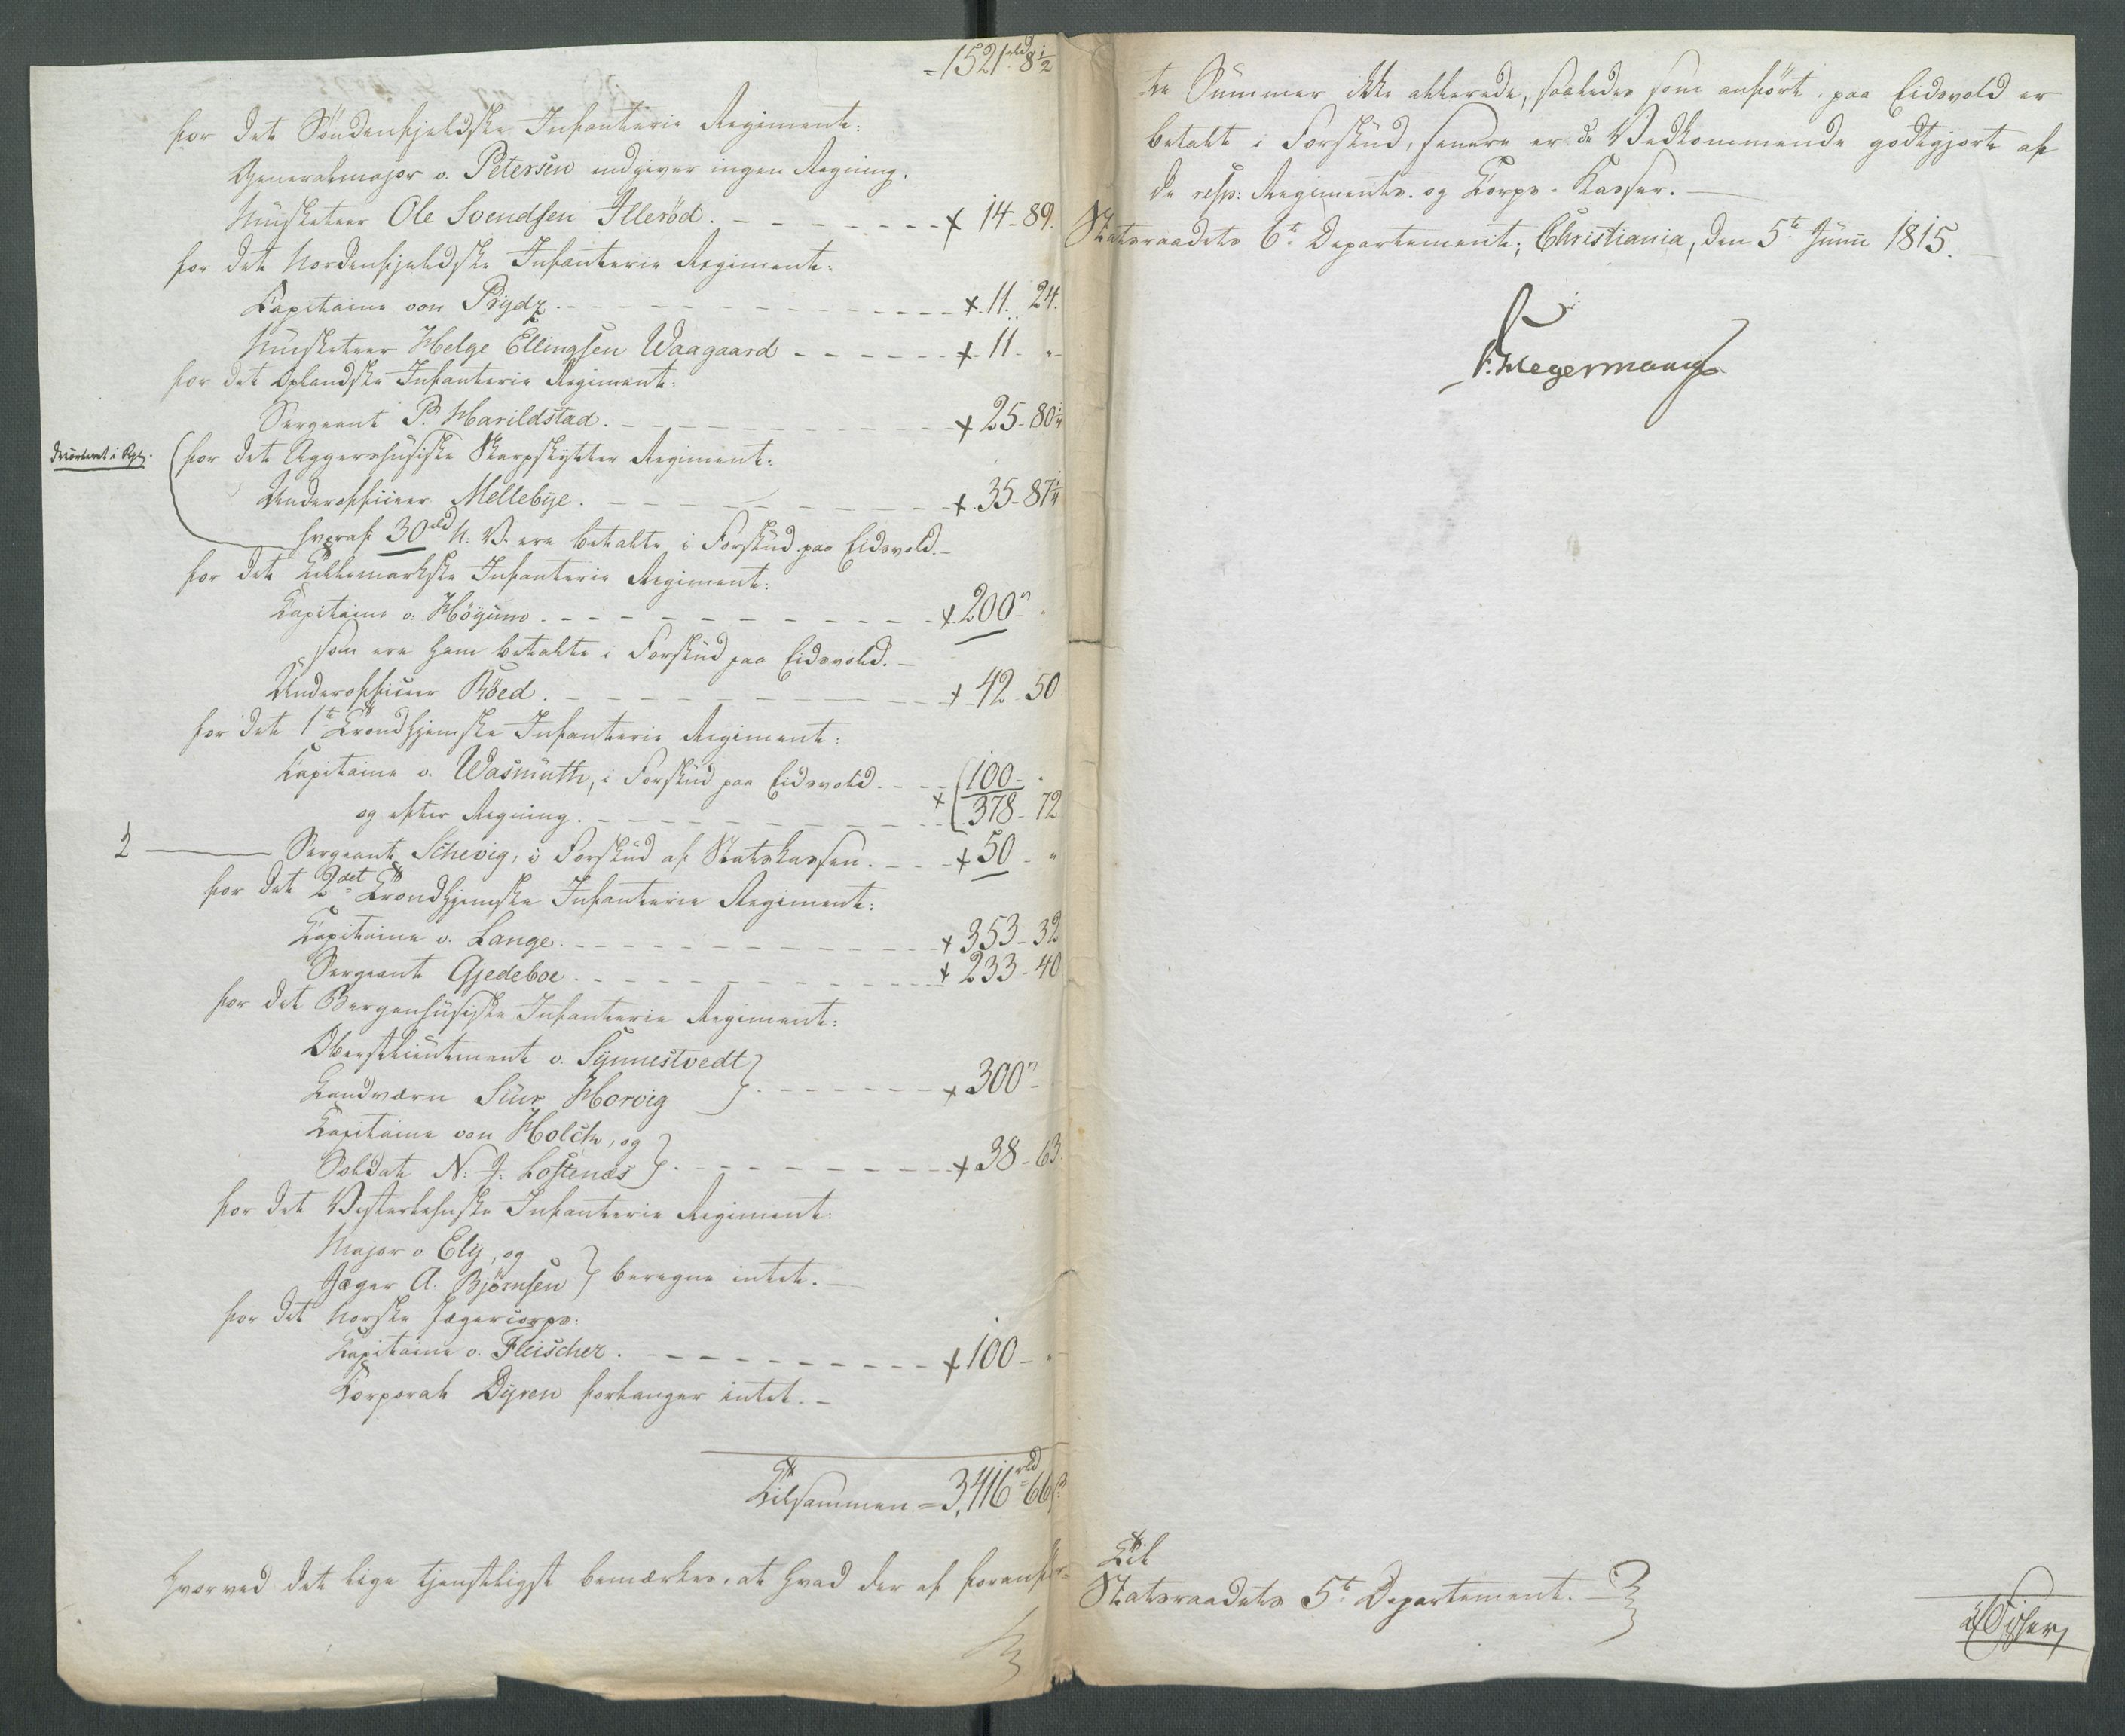 =1521 rbd 8 1/2
for det Söndenfjeldske Infanterie Regiment:
Generalmajor v. Petersen indgiver ingen Regning.
Müsketeer Ole Svendsen Illeröd. - - - - - - + 14 - 89.
for det Nordenfjeldske Infanterie Regiment:
Capitaine von Prÿdz. - - - - - - - - - - + 11. 24.
Müsketeer Helge Ellingsen Waagaard - - - - - - + 11 - "
for det Oplandske Infanterie Regiment:
Sergeant P. Harildstad. - - - - - - - - + 25 - 80 1/4
for det Aggershusiske Skarpskytter Regiment:
Underofficeer Mellebÿe. - - - - - - - - + 35 - 87 1/4
hvoraf 30 rbd N: V. ere betalte i Forskud paa Eidsvold. -
for det Tellemarkske Infanterie Regiment:
Capitaine v. Höÿum. - - - - - - - - - - + 200 "
som ere ham betalte i Forskud paa Eidsvold. -
Underofficeer Röed. - - - - - - - - + 42 - 50
for det 1te Trondhjemske Infanterie Regiment:
Capitaine v. Wasmuth, i Forskud paa Eidsvold. - - - 100 -
og efter Regning. - - - - - - - - + 378 - 72
2 ——— Sergeant Schevig, i Forskud af Statskassen. - - - + 50 - "
for det 2det Trondhjemske Infanterie Regiment:
Capitaine v. Lange. - - - - - - - - - - + 353 - 32
Sergeant Gjedeboe. - - - - - - - - - - + 233 - 40
for det Bergenhusiske Infanterie Regiment:
Oberstlieutenant v. Sÿnnestvedt
Landværn Siur Horvig } - - - - - - + 300 " -
Capitaine von Holck, og
Soldat N: J: Loftenæs } . - - - - - - - - + 38 - 63.
for det Vesterlehnske Infanterie Regiment:
Major v. Elÿ, og
Jæger A. Björnsen } beregne intet. -
for det Norske Jægercorps:
Capitaine v. Fleischer. - - - - - - - - - + 100 - "
Corporal Dÿren forlanger intet. -
Tilsammen = 3,416 rbd 66 s.
hvorved det lige tjenstligst bemærkes, at hvad der af foranför-
te Summer ikke allerede, saaledes som anfört, paa Eidsvold er
betalt i Forskud, senere er de Vedkommende godtgjort af
de resp: Regiments- og Corps-Kasser. -
Statsraadets 6te Departement; Christiania, den 5te Junii 1815. -
F. Hegermann
Til
Statsraadets 5te Departement. -